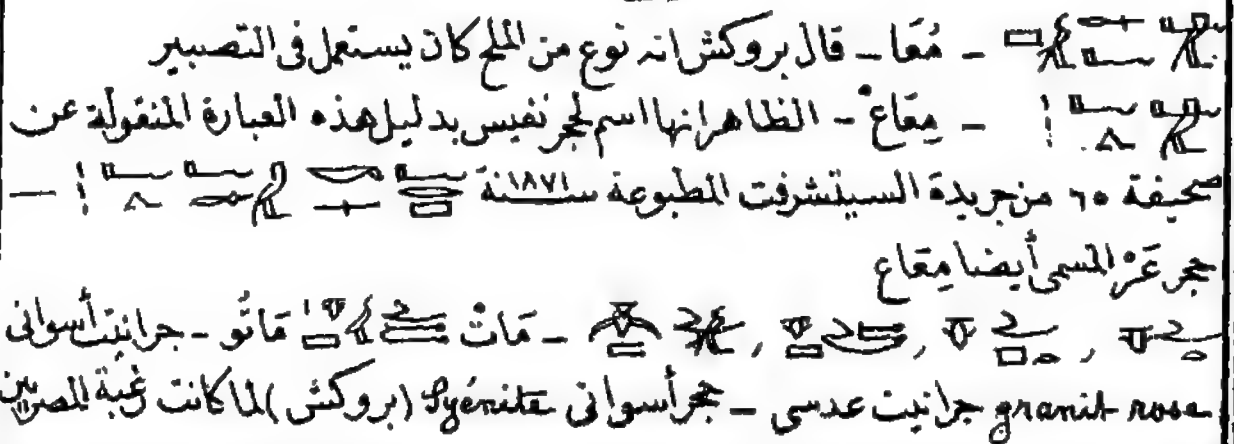 - مُعَا - قال بروكش انه نوع من الملح كان يستعمل فى التصبير
- مِعَاعْ - الظاهر انها اسم لحجر نفيس بدليل هذه العبارة المنقولة عن
صحيفة ٦٥ من جريدة السيتشرفت المطبوعة سنة ١٨٧١ —
حجر عَرْ المسمى أيضا مِعَاع
- مَاتْ مَاتُو - جرانيت أسوانى
granit rose جرانيت عدسى - حجر أسوانى Syénite (بروكش) لما كانت رغبة المصريين